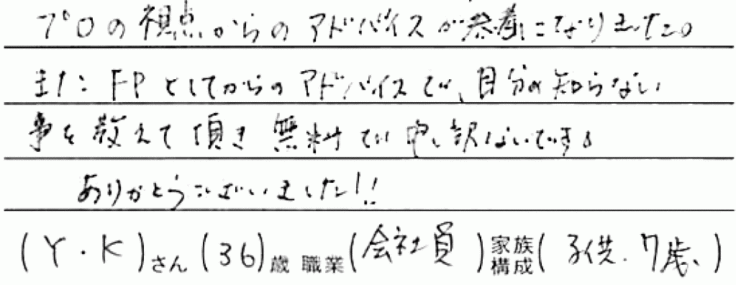 プロの視点からのアドバイスが参考になりました。
また FPとしてからのアドバイスで、自分の知らない
事を教えて頂き 無料で申し訳ないです。
ありがとうございました!!
(Y・K)さん(36)歳 職業(会社員)家族構成(子供.7歳、)